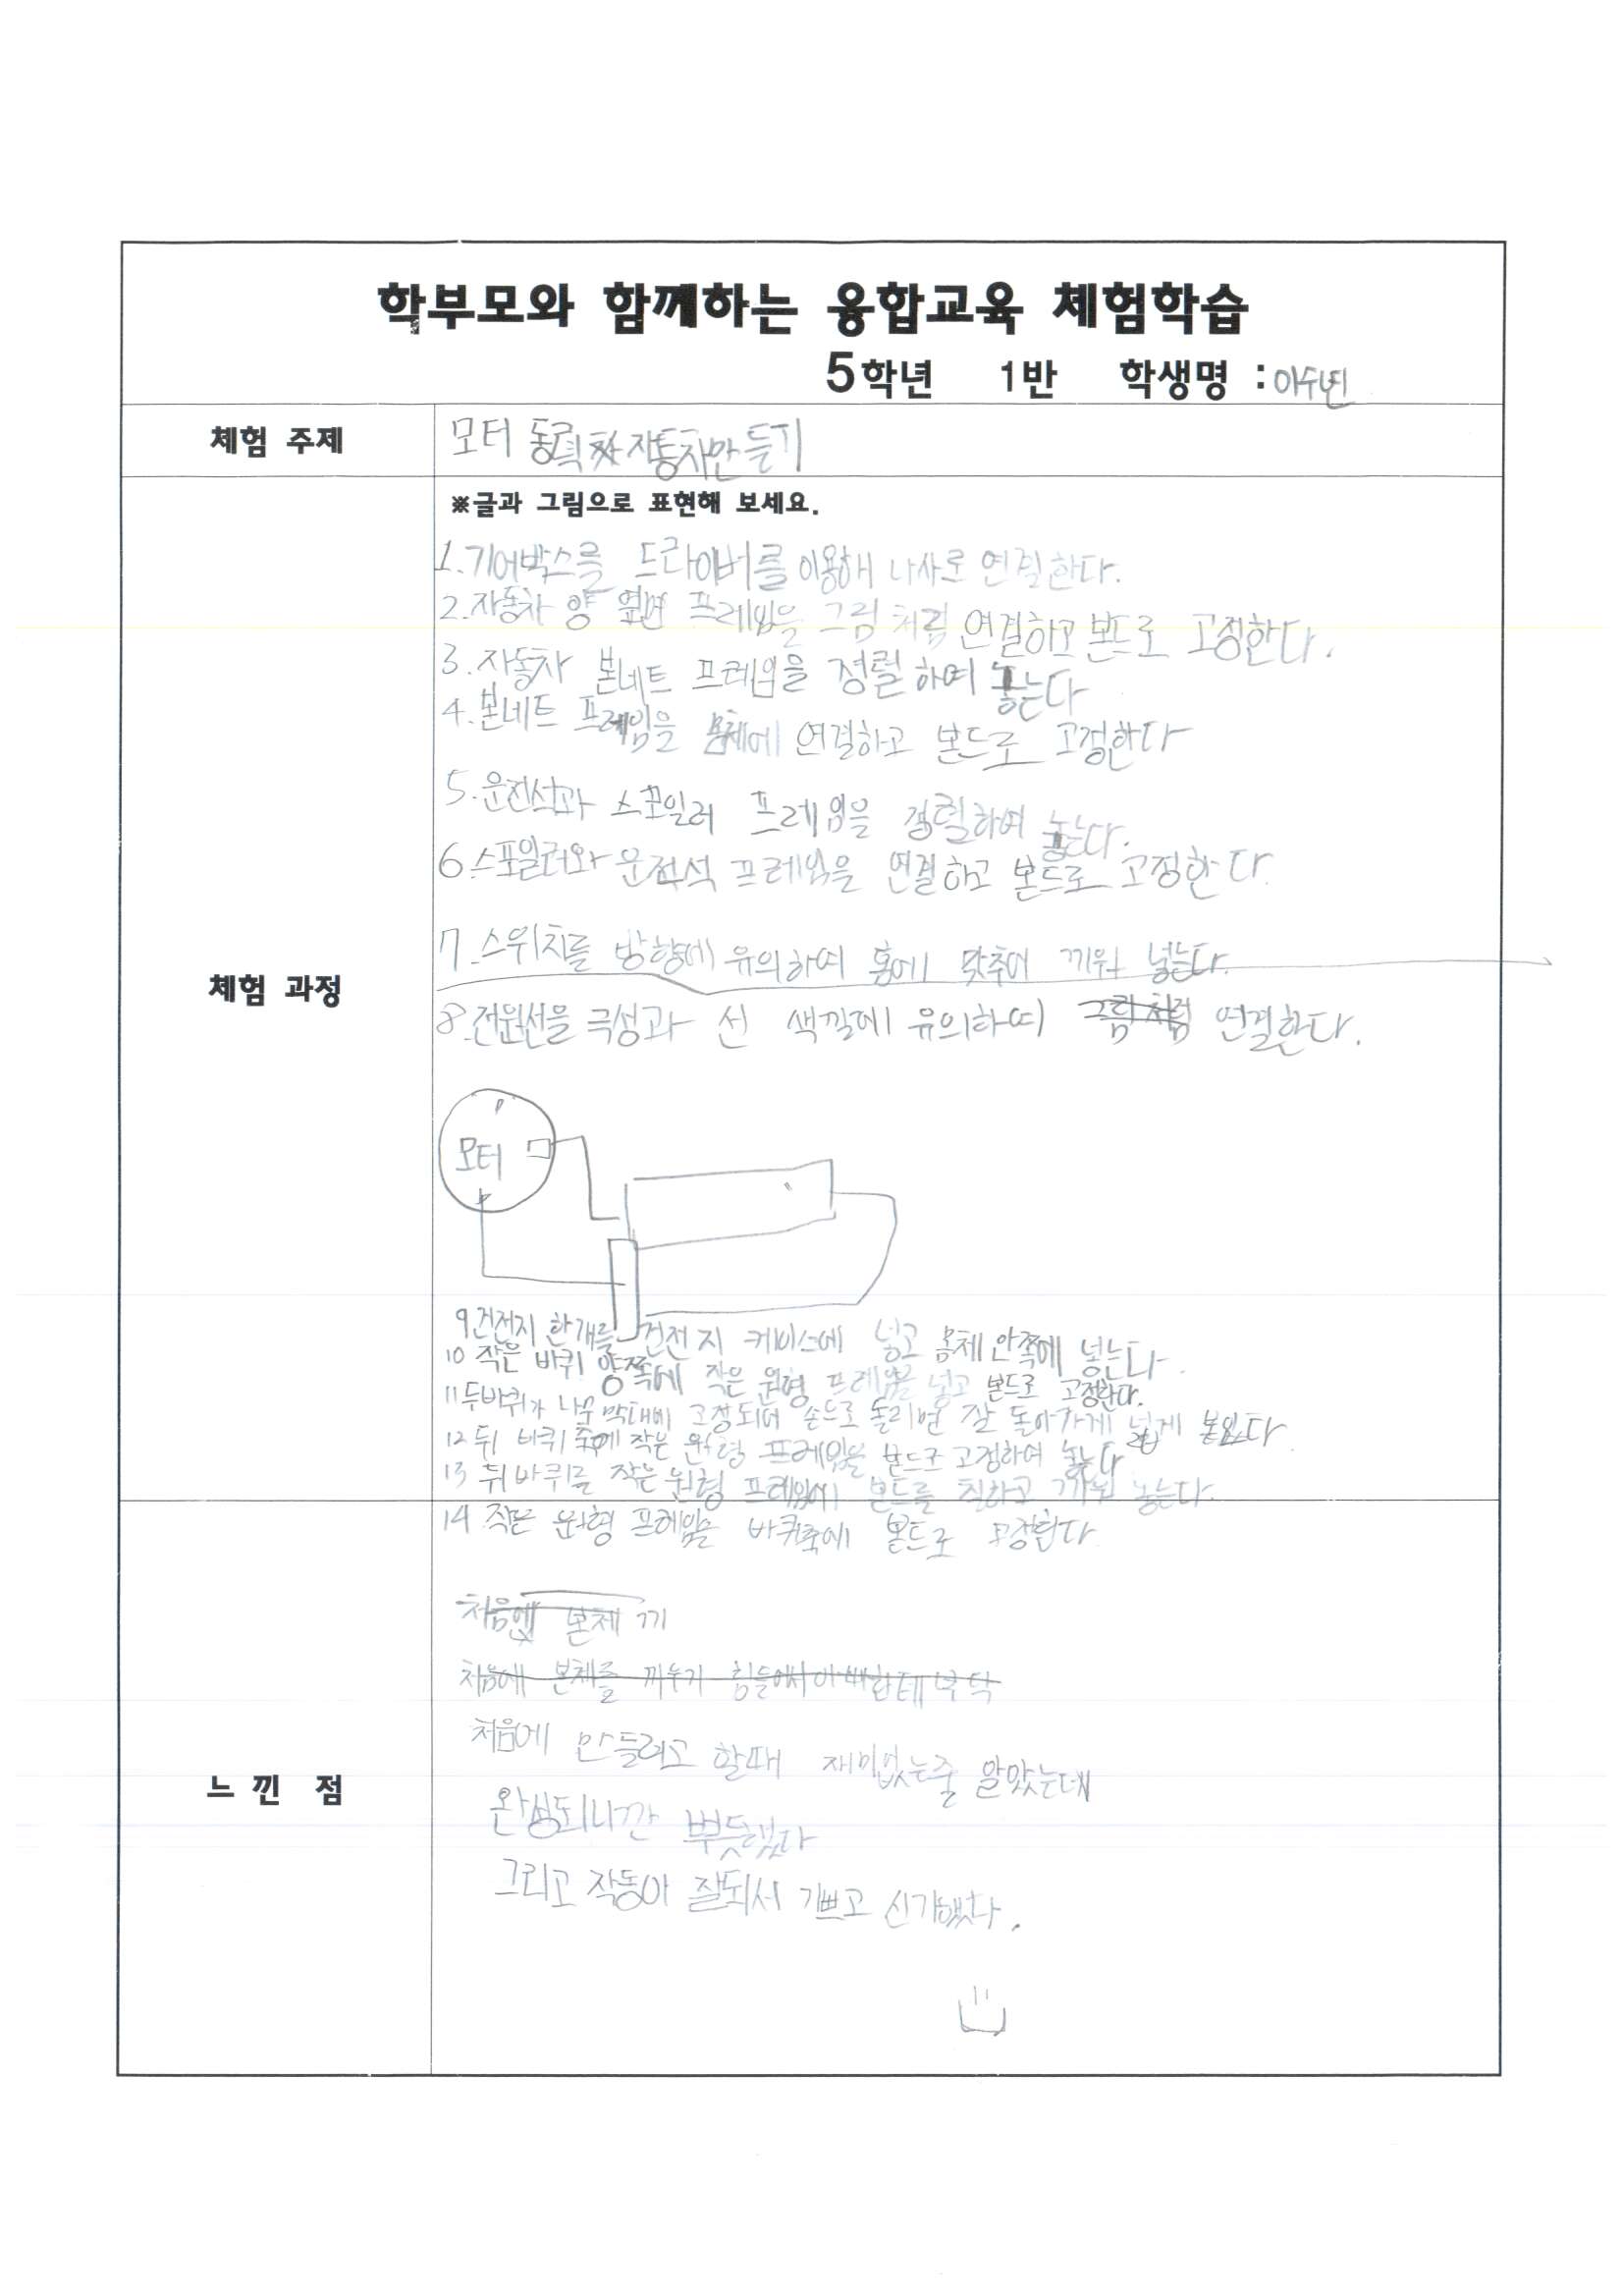 학부모와 함께하는 융합교육 체험학습
5학년 1반 학생명 :
체험 주제
모터 동력 자동차만들기
※글과 그림으로 표현해 보세요.
체험 과정
1.기어박스를 드라이버를 이용해 나사로 연결한다.
2.자동차 양 옆면 프레임을 그림처럼 연결하고 본드로 고정한다.
3.자동차 본네트 프레임을 정렬하여 놓는다
4.본네트 프레임을 몸체에 연결하고 본드로 고정한다
5.운전석과 스포일러 프레임을 정렬하여 놓는다.
6.스포일러와 운전석 프레임을 연결하고 본드로 고정한다.
7.스위치를 방향에 유의하여 홈에 맞추어 끼워 넣는다.
8.전원선을 극성과 선 색깔에 유의하여 그림처럼 연결한다.
모터
9건전지 한개를 건전지 케이스에 넣고 몸체 안쪽에 넣는다.
10 작은 바퀴 양쪽에 작은 원형 프레임을 넣고 본드로 고정한다.
11두바퀴가 나무막대에 고정되어 손으로 돌리면 잘 돌아가게 넓게
12 뒤 바퀴 축에 작은 원형 프레임을 본드로 고정하여 놓는다
13 뒤바퀴를 작은 원형 프레임에 본드를 칠하고 끼워 놓는다.
14 작은 원형 프레임을 바퀴축에 본드로 고정한다.
느낀 점
처음엔 본체 끼
처음에 본체를 끼우기 힘들어서 아빠한테 부탁
처음에 만들려고 할때 재미없는줄 알았는데
완성되니깐 뿌듯했다
그리고 작동이 잘되서 기쁘고 신기했다.